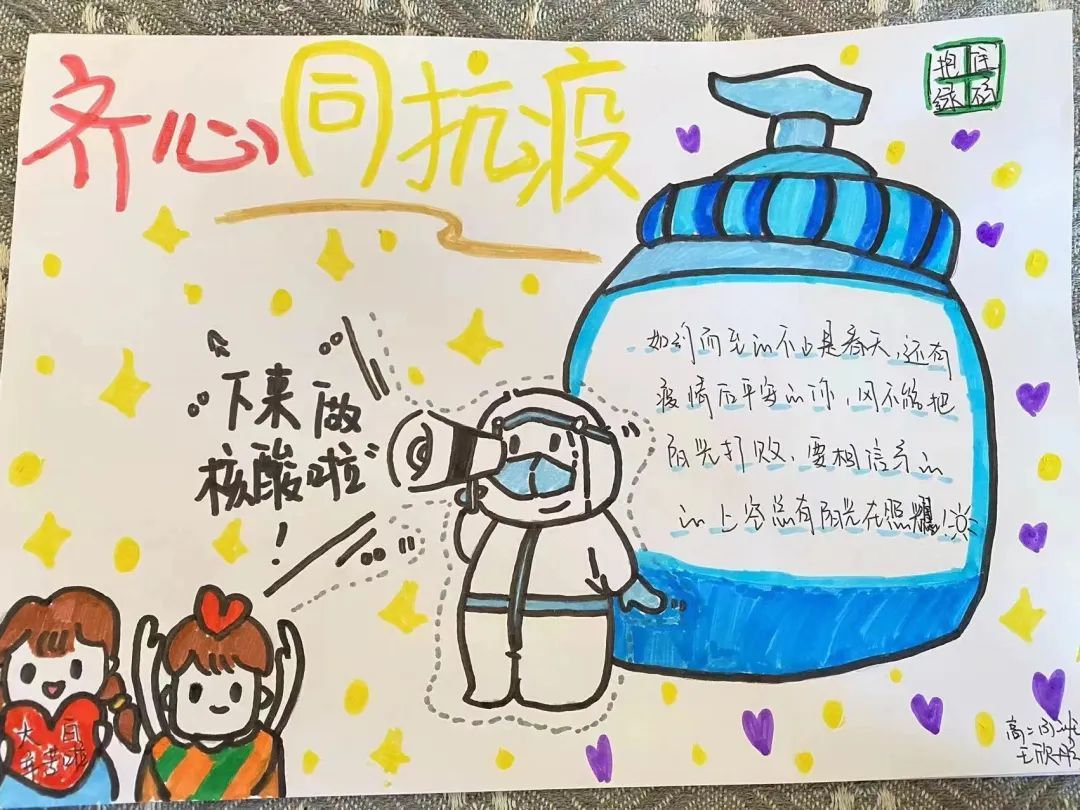 齐心同抗疫
抱住
绿码
如约而至的不止是春天,还有
疫情后平安的你,风不能把
阳光打败,要相信 的
的上空总有阳光在照耀!
下来做
核酸啦
!
大白
辛苦啦
高二 班
王欣